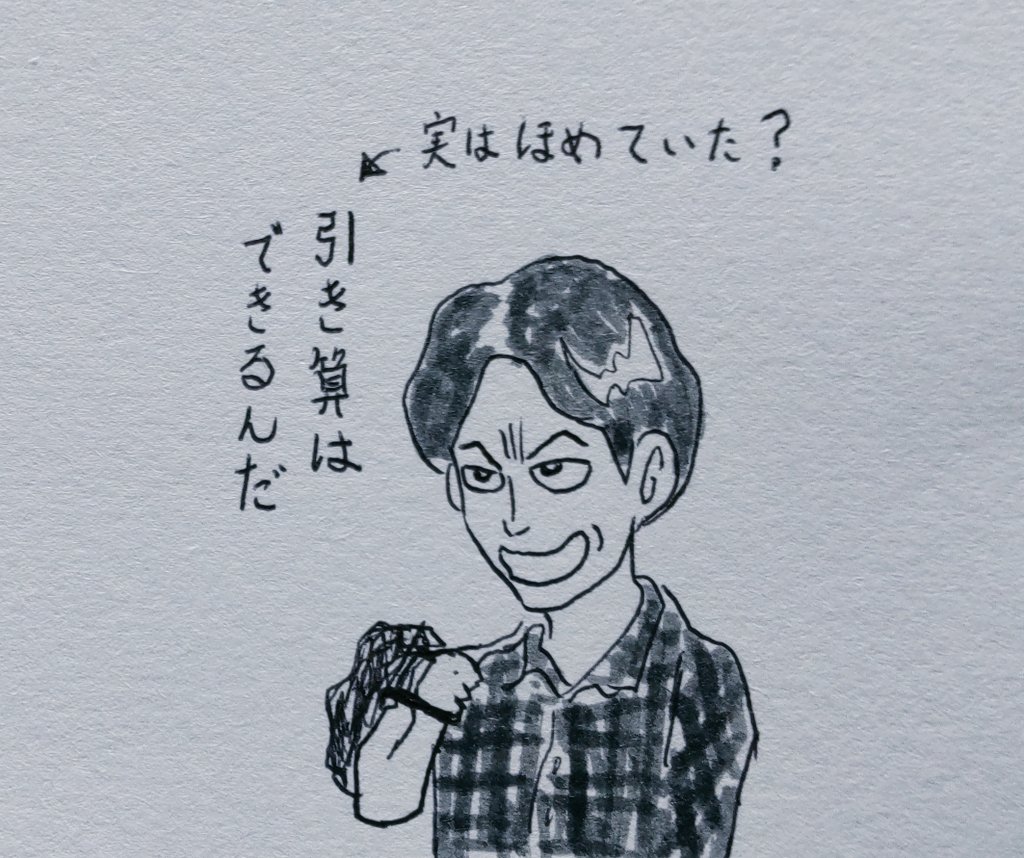 実はほめていた?
引き算は
できるんだ